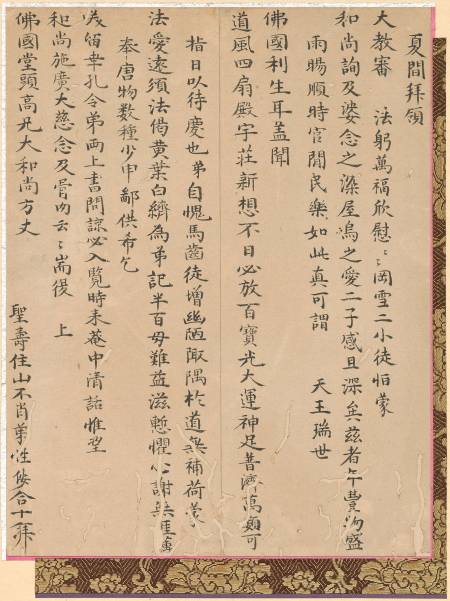 夏間拜領
大教審　法躬萬福欣慰〻岡雪二小徒怕蒙
和尚詢及婆念之深屋烏之愛二子感且深矣茲者年豊物盛
雨暘順時官閒民樂如此真可謂　天王瑞世
佛國利生耳盖聞
道風四扇殿宇莊新想不日必放百寶光大運神足普濟萬類可
指日以待慶也弟自愧馬齒徒增幽陋陬隅於道無補荷蒙
法愛遠須法偈黄葉白纊為弟記半百母難益滋慙懼心謝無
奉唐物數種少申鄙供希乞
笑留幸孔令弟兩上書問諒必入覽時来菴中清話惟望
和尚施廣大慈念及骨肉云〻耑復　上
佛國堂頭高兄大和尚方丈
聖壽住山不肖弟性合十拜